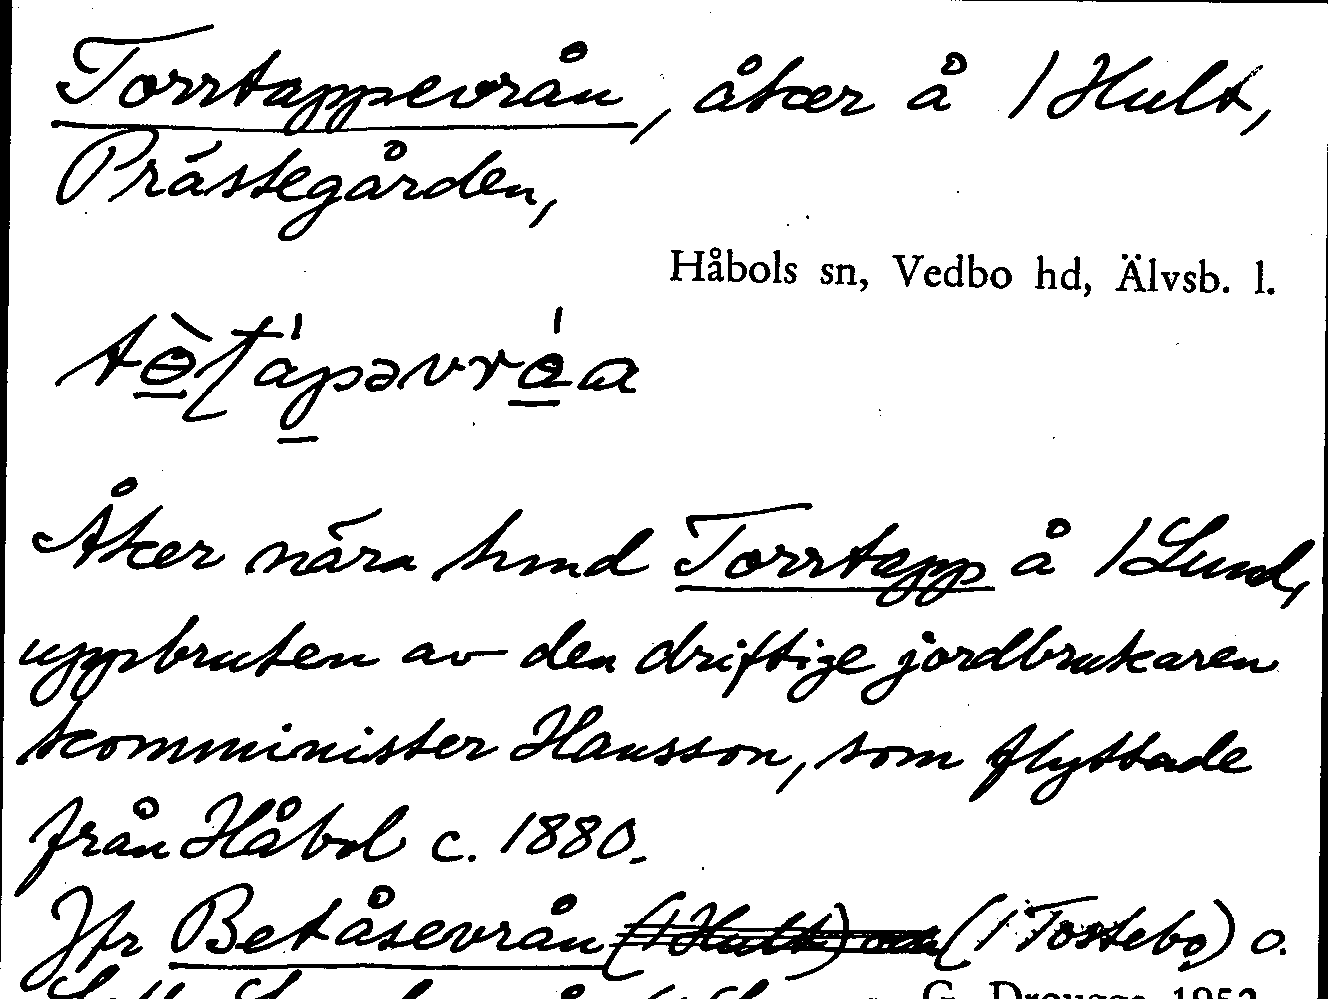 Torrtappevrån, åker å 1 Hult,
Prästegården,
Håbols sn, Vedbo hd, Älvsb. l.
Åker nära hmd Torrtapp å 1 Lund,
uppbruten av den driftige jordbrukaren
komminister Hansson, som flyttade
från Håbol c. 1880.
Jfr Betåsevrån (1 Hult) och (1 Tostebo) o.
G. Drougge 1952